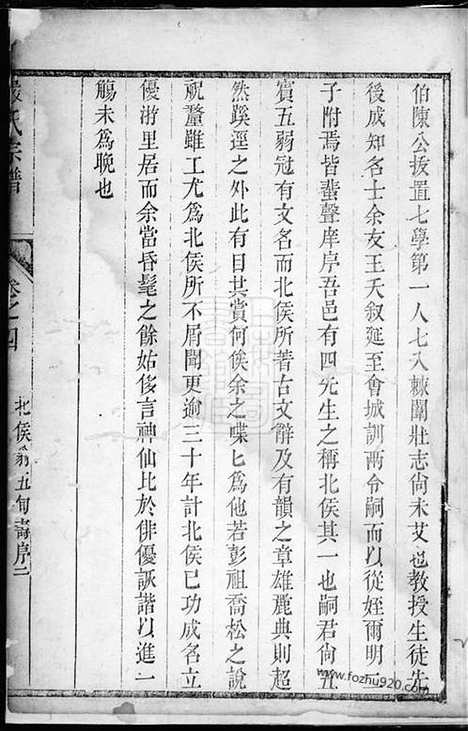 伯陳公拔置七學第一人七入棘闈壯志尚未艾也教授生徒先
後成知名士余友王天叙延至會城訓兩令嗣而以從姪爾明
子附焉皆蜚聲庠序吾邑有四先生之稱北侯其一也嗣君尚
寳五弱冠有文名而北侯所著古文辭及有韻之章雄麗典則超
然蹊逕之外此有目共賞何俟余之喋匕為他若彭祖喬松之說
祝釐雖工尤為北侯所不屑聞更逾三十年計北侯已功成名立
優游里居而余當昏髦之餘姑侈言神仙比於俳優詼諧以進一
觴未為晚也
氏宗譜
卷之四
北侯翁五旬壽序二
www.fozhu920.com